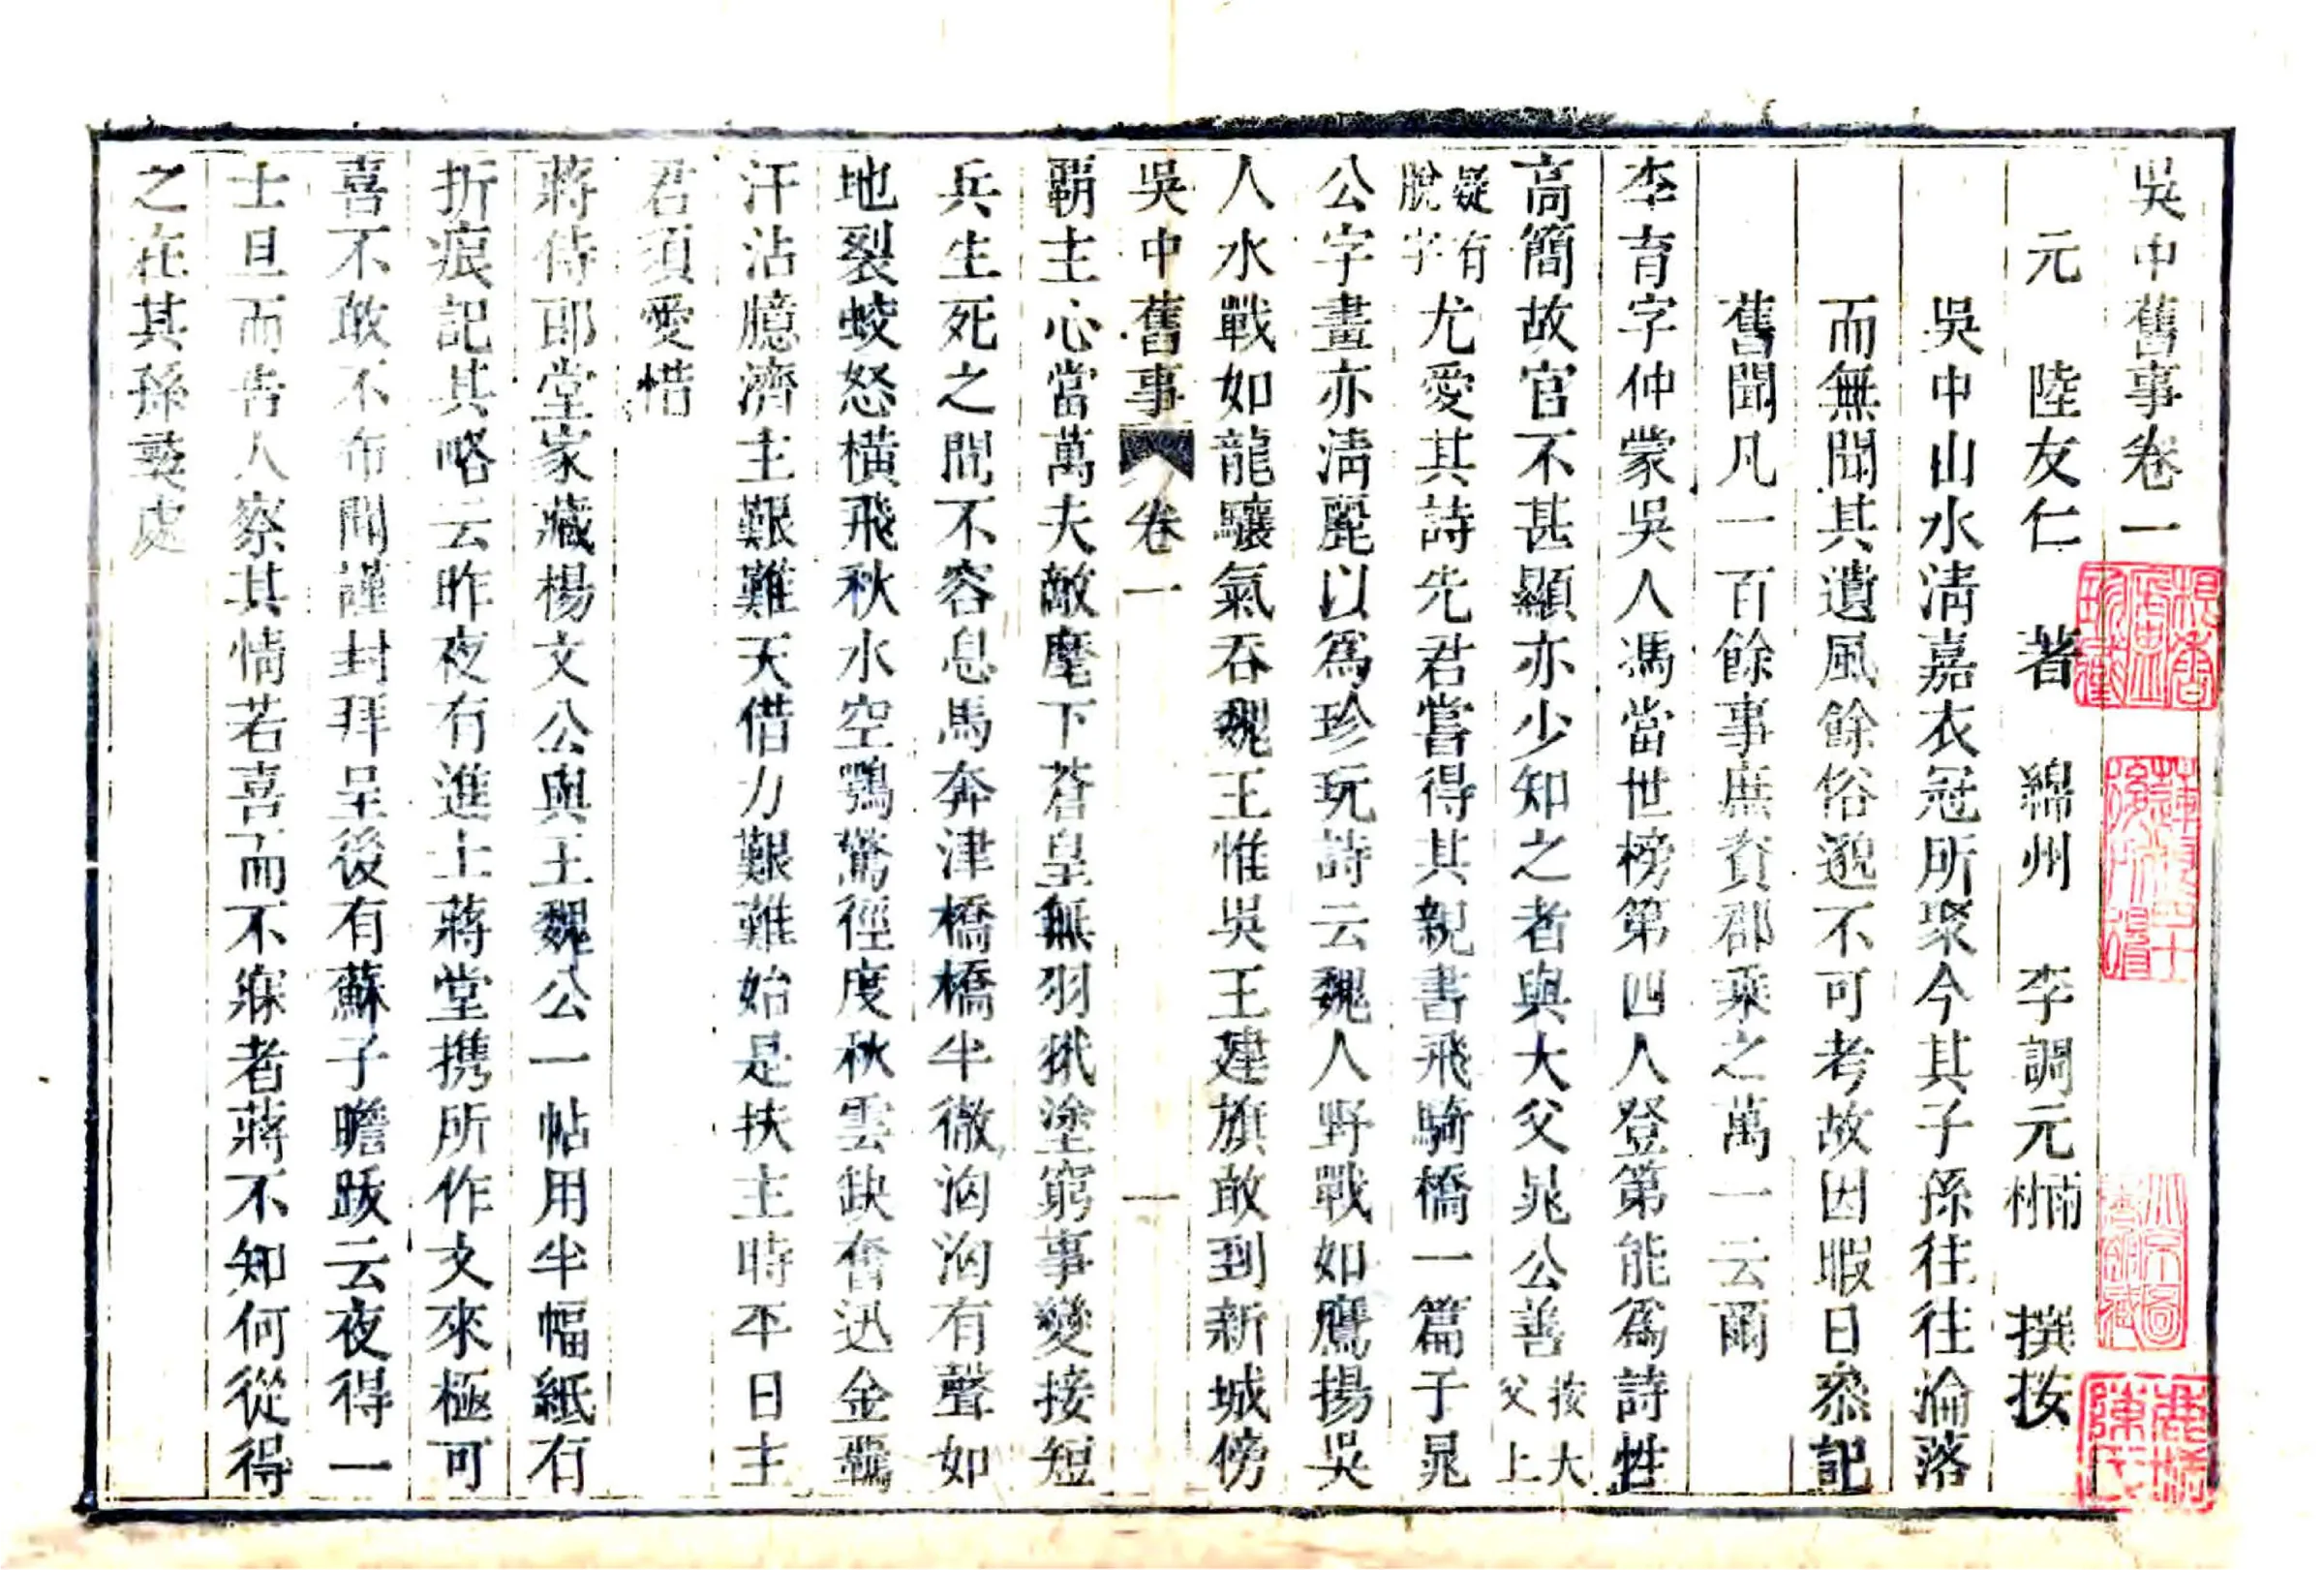 吳中舊事卷一
元　陸友仁　著　綿州　李調元　撰　按
吳中山水淸嘉衣冠所聚今其子孫往往淪落
而無聞其遺風餘俗邈不可考故因暇日叅記
舊聞凡一百餘事庶資郡乘之萬一云爾
李育字仲蒙吳人馮當世榜第四人登第能爲詩性
高簡故官不甚顯亦少知之者與大父晁公善按大父上
疑有脫字尤愛其詩先君嘗得其親書飛騎橋一篇于晁
公字畫亦淸麗以爲珍玩詩云魏人野戰如鷹揚吳
人水戰如龍驤氣吞魏王惟吳王建旗敢到新城傍
吳中舊事　卷一　一
覇主心當萬夫敵麾下蒼皇無羽狀塗窮事變接短
兵生死之間不容息馬奔津橋橋半徹洶洶有聲如
地裂蛟怒橫飛秋水空鶚驚徑度秋雲缺奮迅金羈
汗沾臆濟主艱難天借力艱難始是扶主時平日主
君須愛惜
蔣侍郎堂家藏楊文公與王魏公一帖用半幅紙有
折痕記其略云昨夜有進士蔣堂携所作文來極可
喜不敢不布聞謹封拜呈後有蘇子瞻跋云夜得一
士旦而告人察其情若喜而不寐者蔣不知何從得
之在其孫彝處